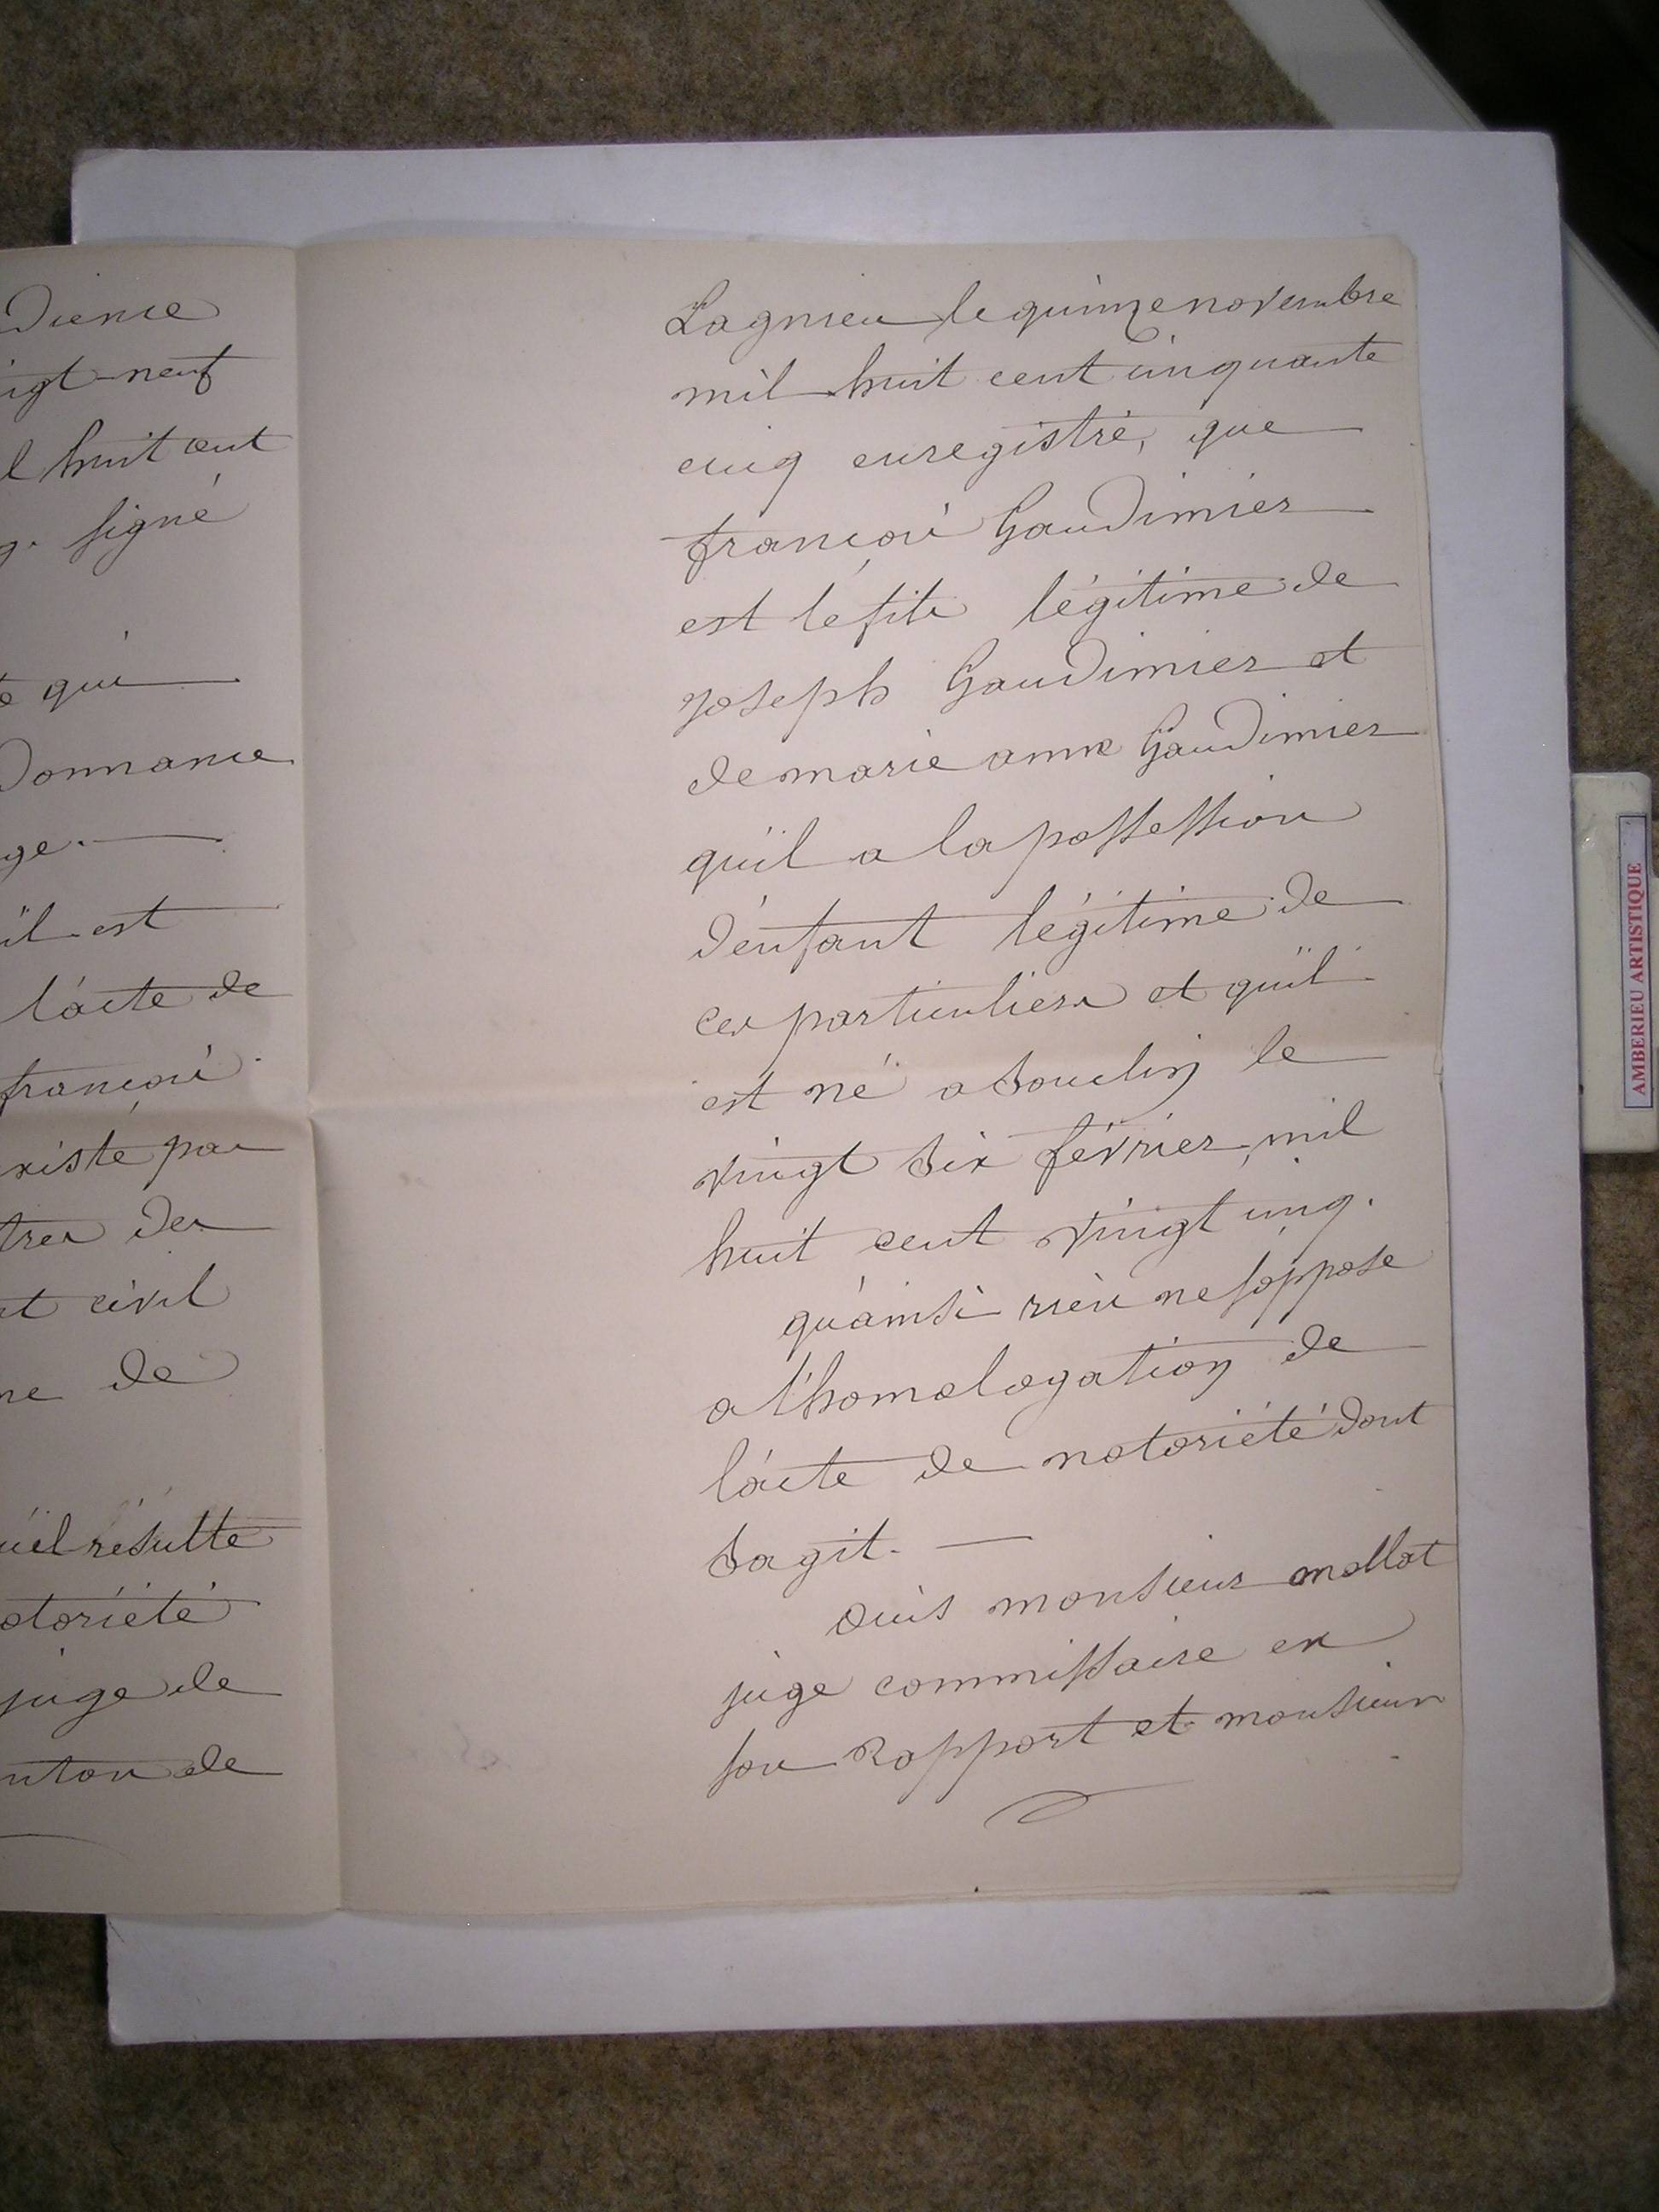 Dience
igt-neuf
l huit cent
g. signé
qui
Donnance
ge.
il est
l'acte de
françois
xiste pas
tres des
at civil
ne de
u'il résulte
otoriété
juge de
nton de
Lagnieu le quinze novembre
mil huit cent cinquante
cinq enregistré, que
françois Gaudimier
est le fils légitime de
joseph Gaudimier et
de marie anne Gaudimier
qu'il a la possession
d'enfant légitime de
ces particuliers et qu'il
est né a Souclin le
vingt Six février mil
huit cent vingt unq.
qu'ainsi rien ne s'oppose
a l'homologation de
l'acte de notoriété dont
Sagit.
ouis monsieur mollat
juge commissaire en
son Rapport et monsieur
AMBERIEU ARTISTIQUE